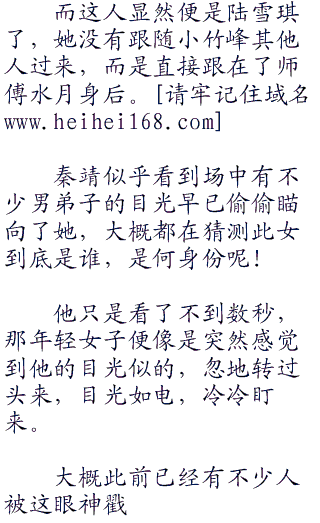 而这人显然便是陆雪琪
了，她没有跟随小竹峰其他
人过来，而是直接跟在了师
傅水月身后。[请牢记住域名
www.heihei168.com]
秦靖似乎看到场中有不
少男弟子的目光早已偷偷瞄
向了她，大概都在猜测此女
到底是谁，是何身份呢！
他只是看了不到数秒，
那年轻女子便像是突然感觉
到他的目光似的，忽地转过
头来，目光如电，冷冷盯
来。
大概此前已经有不少人
被这眼神戳